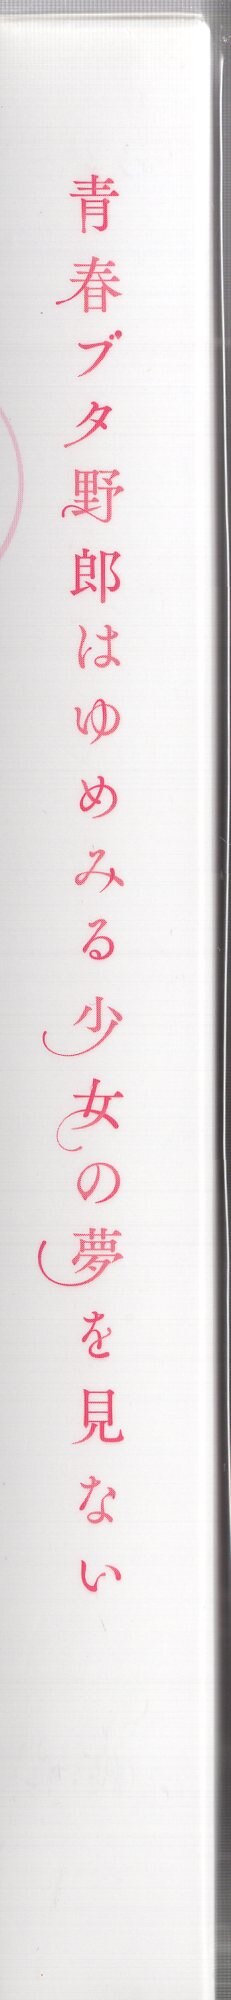 青春ブタ野郎はゆめみる少女の夢を見ない